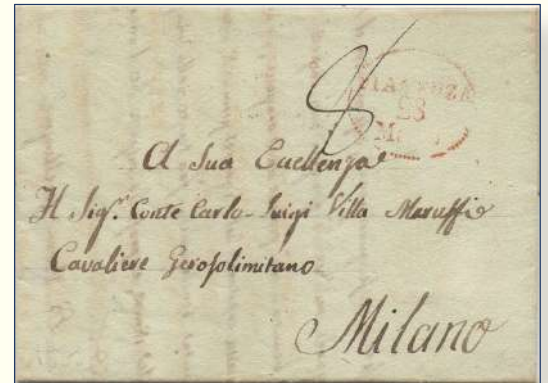 8
PIACENZA
23
A Sua Eccellenza
Il Sig.r Conte Carlo Luigi Villa Maruffi
Cavaliere Gerosolimitano
Milano